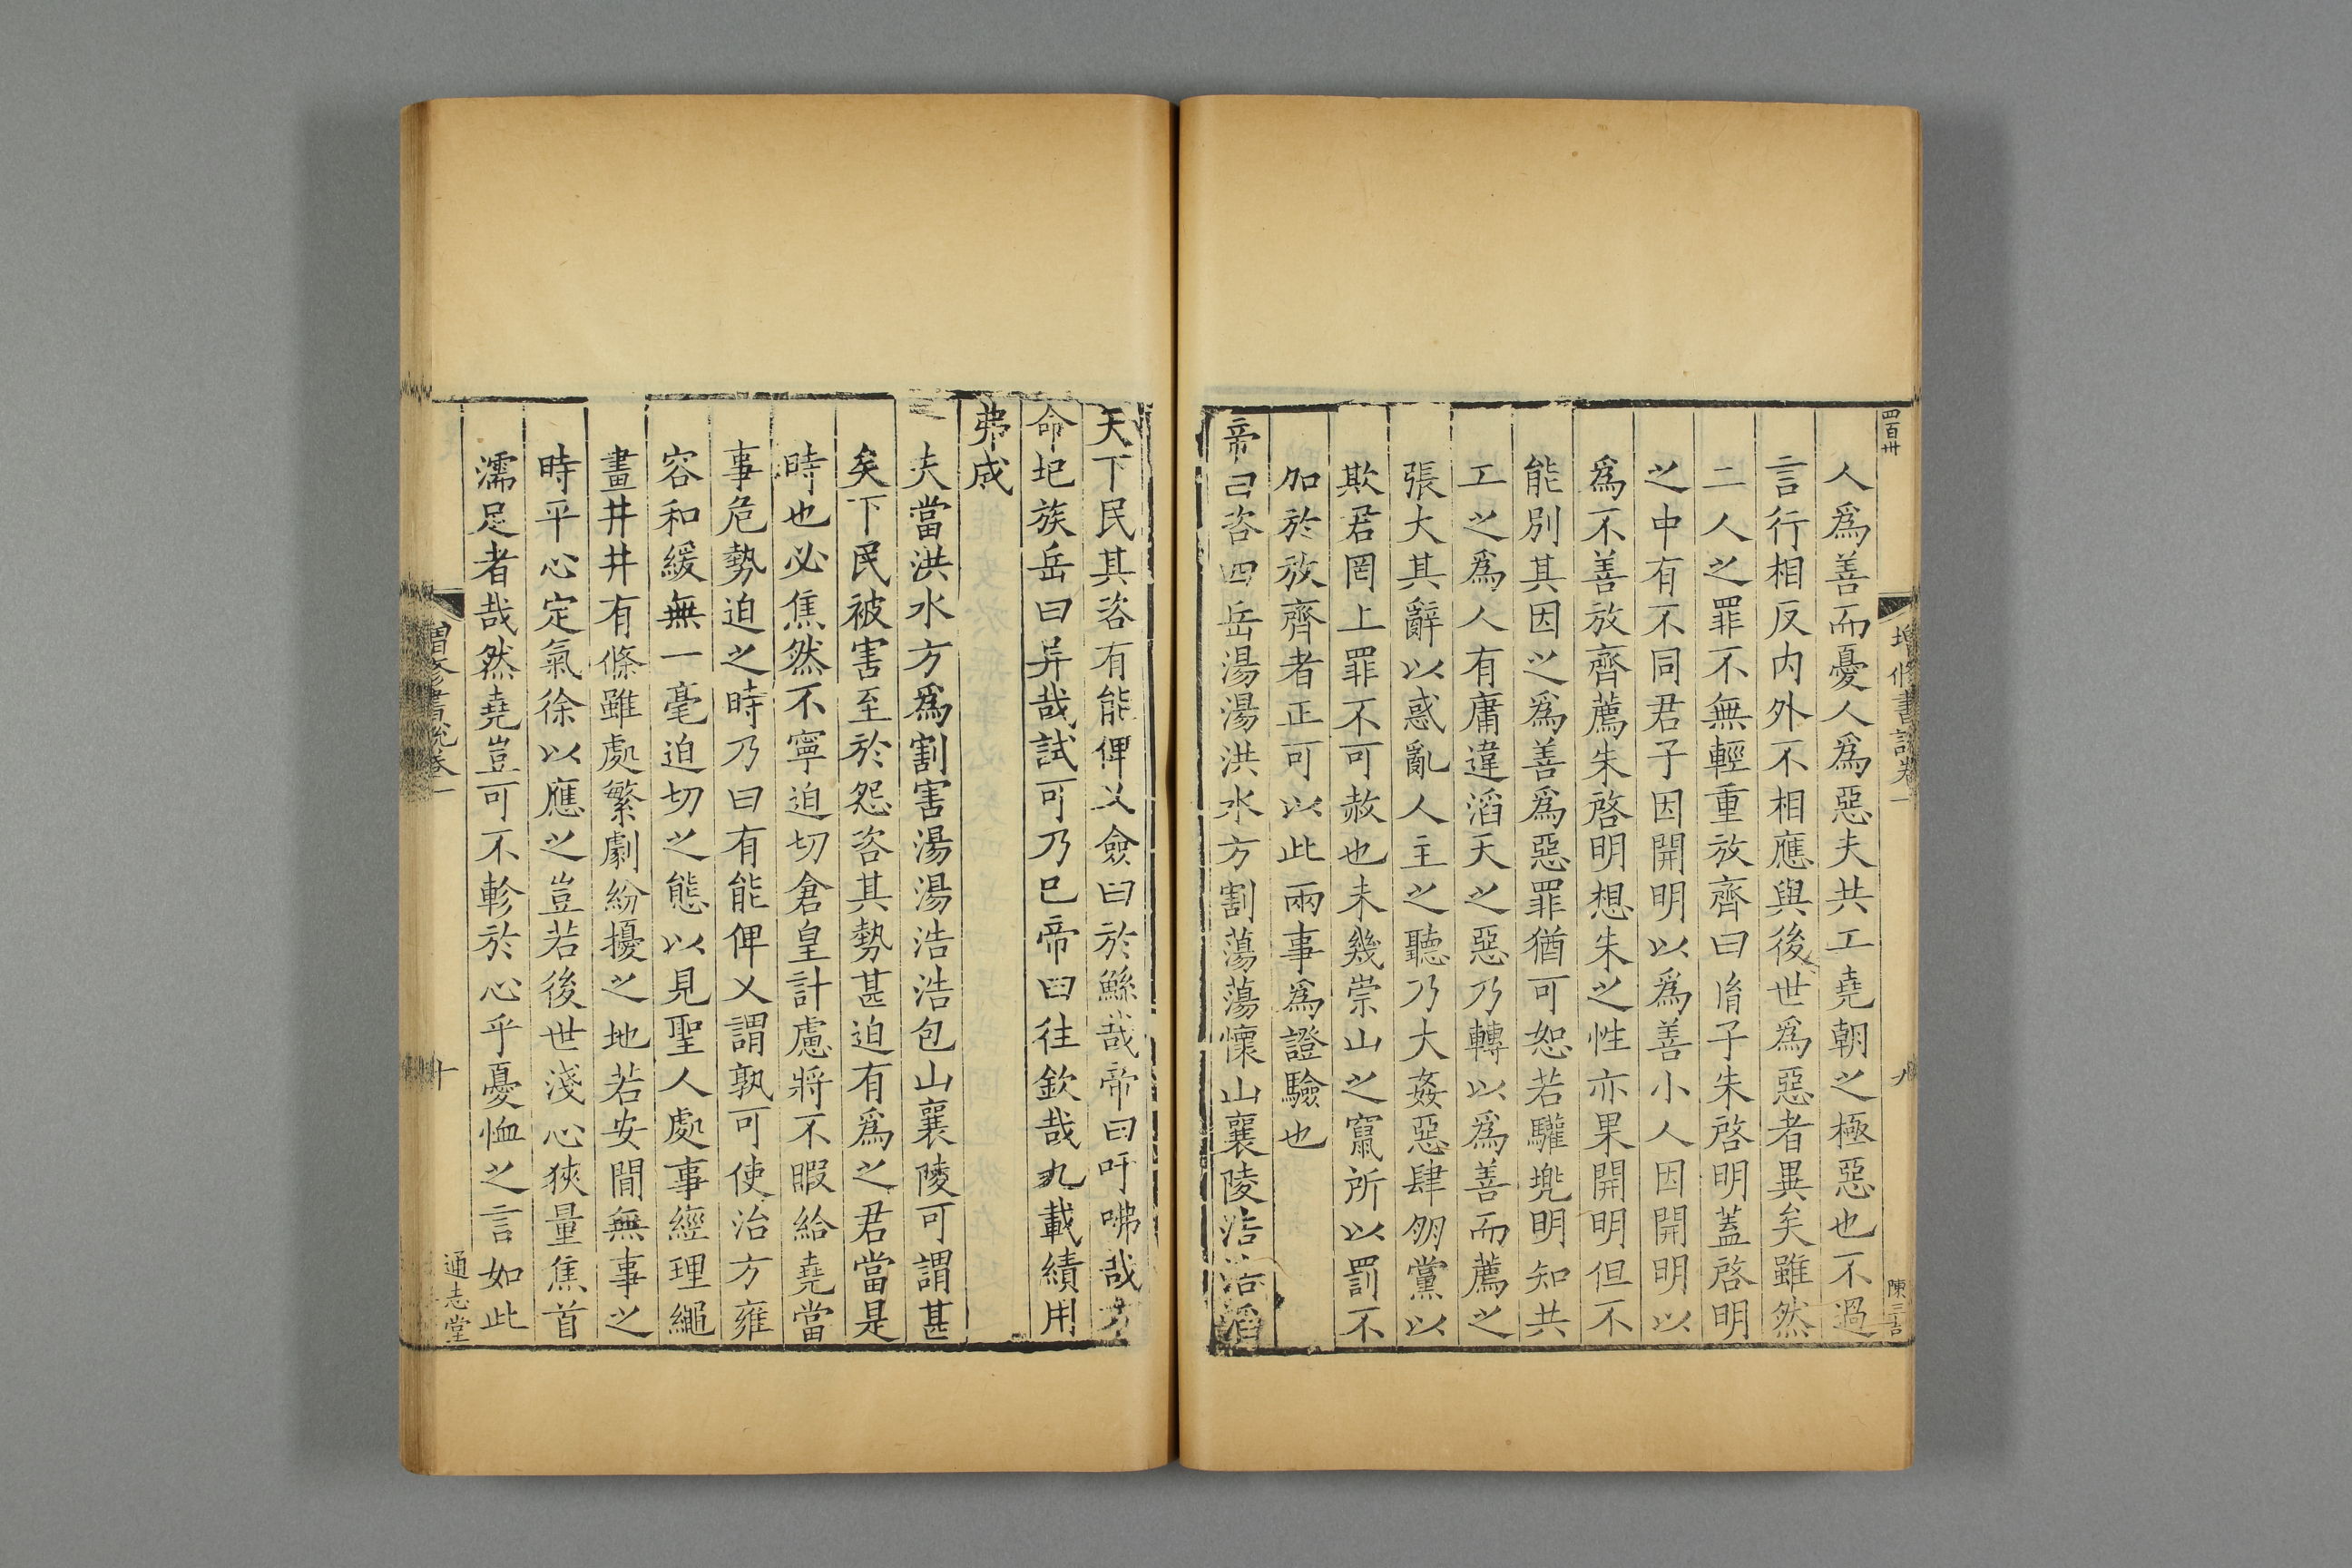 四百卅
增修書說卷一
九
陳三吉
人爲善而憂人爲惡夫共工堯朝之極惡也不過
言行相反内外不相應與後世爲惡者異矣雖然
二人之罪不無輕重放齊曰胤子朱啓明蓋啓明
之中有不同君子因開明以爲善小人因開明以
爲不善放齊薦朱啓明想朱之性亦果開明但不
能別其因之爲善爲惡罪猶可恕若驩兠明知共
工之爲人有庸違滔天之惡乃轉以爲善而薦之
張大其辭以惑亂人主之聽乃大姦惡肆朋黨以
欺君罔上罪不可赦也未幾崇山之竄所以罰不
加於放齊者正可以此兩事爲證驗也
帝曰咨四岳湯湯洪水方割蕩蕩懷山襄陵浩浩滔
天下民其咨有能俾乂僉曰於鯀哉帝曰吁咈哉方
命圯族岳曰异哉試可乃巳帝曰往欽哉九載績用
弗成
夫當洪水方爲割害湯湯浩浩包山襄陵可謂甚
矣下民被害至於怨咨其勢甚迫有爲之君當是
時也必焦然不寧迫切倉皇計慮將不暇給堯當
事危勢迫之時乃曰有能俾乂謂孰可使治方雍
容和緩無一毫迫切之態以見聖人處事經理繩
畫井井有條雖處繁劇紛擾之地若安閒無事之
時平心定氣徐以應之豈若後世淺心狹量焦首
濡足者哉然堯豈可不軫於心乎憂恤之言如此
增修書說卷一
十
通志堂